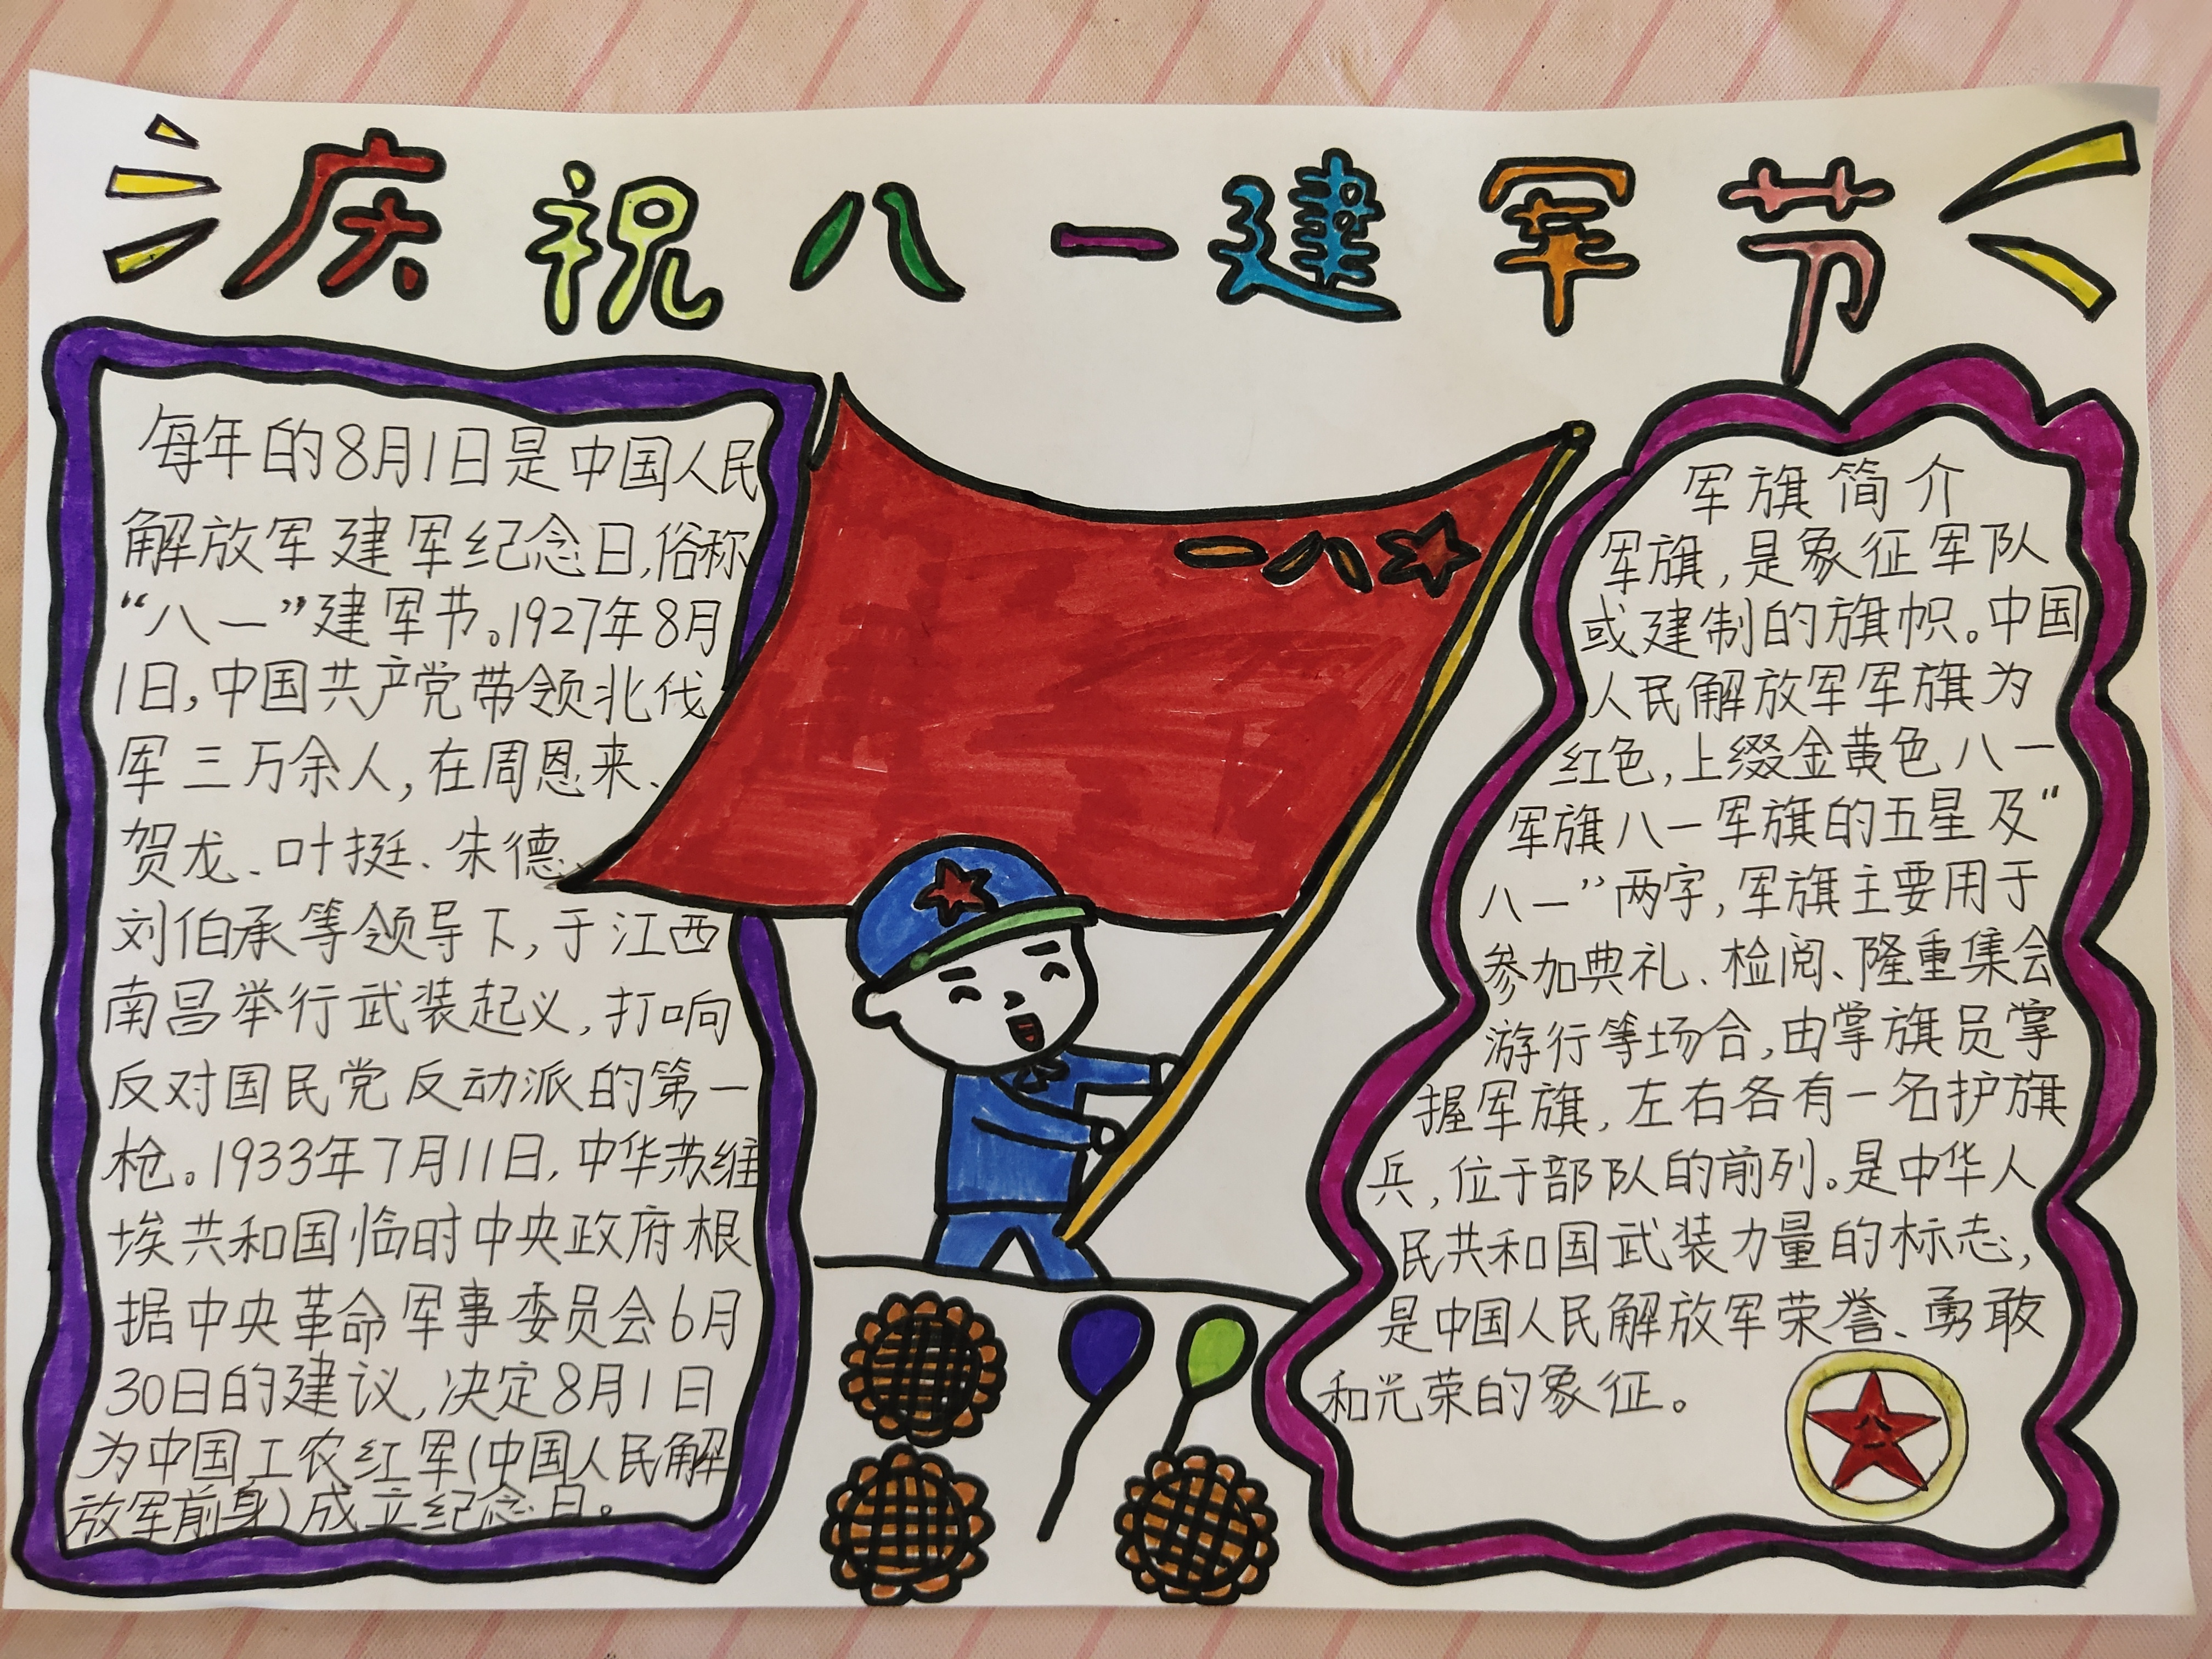 庆祝八一建军节
每年的8月1日是中国人民
解放军建军纪念日,俗称
“八一”建军节。1927年8月
1日,中国共产党带领北伐
军三万余人,在周恩来、
贺龙、叶挺、朱德、
刘伯承等领导下,于江西
南昌举行武装起义,打响
反对国民党反动派的第一
枪。1933年7月11日,中华苏维
埃共和国临时中央政府根
据中央革命军事委员会6月
30日的建议,决定8月1日
为中国工农红军(中国人民解
放军前身)成立纪念日。
一八
军旗简介
军旗,是象征军队
或建制的旗帜。中国
人民解放军军旗为
红色,上缀金黄色八一
军旗八一军旗的五星及“
八一”两字,军旗主要用于
参加典礼、检阅、隆重集会
游行等场合,由掌旗员掌
握军旗,左右各有一名护旗
兵,位于部队的前列。是中华人
民共和国武装力量的标志,
是中国人民解放军荣誉、勇敢
和光荣的象征。
八一